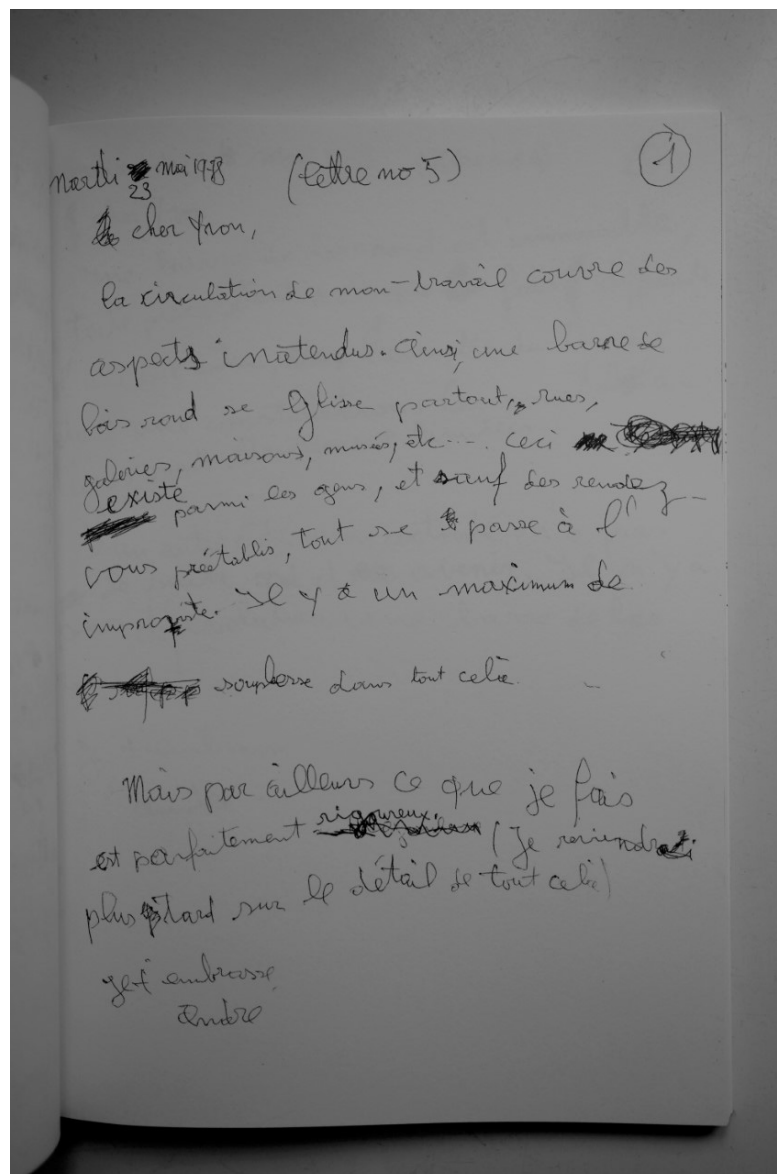 mardi 23 mai 1978 (lettre no 5) 1
cher Yvon,
la circulation de mon travail couvre des
aspects inattendus. ainsi, une barre de
bois rond se glisse partout, rues,
galeries, maisons, musées, etc... ceci
existe parmi les gens, et sauf des rendez-
vous préétablis, tout se passe à l'
improviste. Il y a un maximum de
souplesse dans tout cela.
Mais par ailleurs ce que je fais
est parfaitement rigoureux. (Je reviendrai
plus tard sur le détail de tout cela)
je t'embrasse
andré